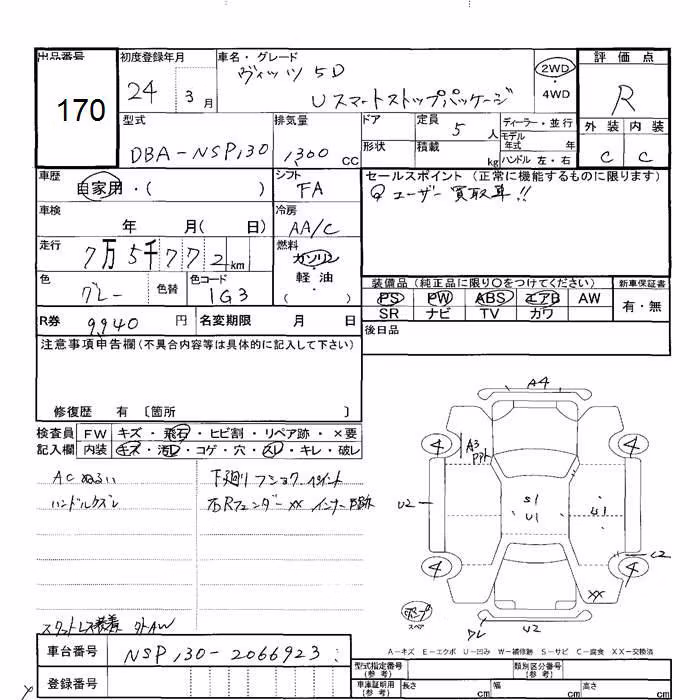 出品番号
170
初度登録年月
24 3月
車名・グレード
ヴィッツ 5D
Uスマートストップパッケージ
2WD
・
4WD
評価点
R
外装 内装
C C
型式
DBA-NSP130
排気量
1300 CC
ドア
形状
定員
5人
積載
kg
ディーラー・並行
モデル年式 年
ハンドル 左・右
車歴
自家用・( )
シフト
FA
セールスポイント (正常に機能するものに限ります)
ユーザー買取車!!
車検
年 月( 日)
冷房
AA/C
走行
7万5千772km
燃料
ガソリン
・
軽油
( ・ )
色
グレー
色替
色コード
1G3
装備品 (純正品に限り〇をつけてください)
新車保証書
PS PW ABS エアB AW
SR ナビ TV カワ
有・無
R券 9,940円 名変期限 月 日
後日品
注意事項申告欄(不具合内容等は具体的に記入して下さい)
修復歴 有 〔箇所 〕
検査員記入欄
FW キズ・飛石・ヒビ割・リペア跡・×要
内装 キズ・汚レ・コゲ・穴・スレ・キレ・破レ
ACぬるい
ハンドルクズレ
下廻り
右Rフェンダーxx インナー
スタッドレス装着 夕トAW
A4
4
A3
4
U2
S1
U1
U1
C2
4
4
XX
スペア
ワレ
U2
A-キズ E-エクボ U-凹み W-補修跡 S-サビ C-腐食 XX-交換済
車台番号 NSP130-2066923
登録番号
型式指定番号
(参考)
類別区分番号
(参考)
車庫証明用
(参考)
長さ cm
幅 cm
高さ cm